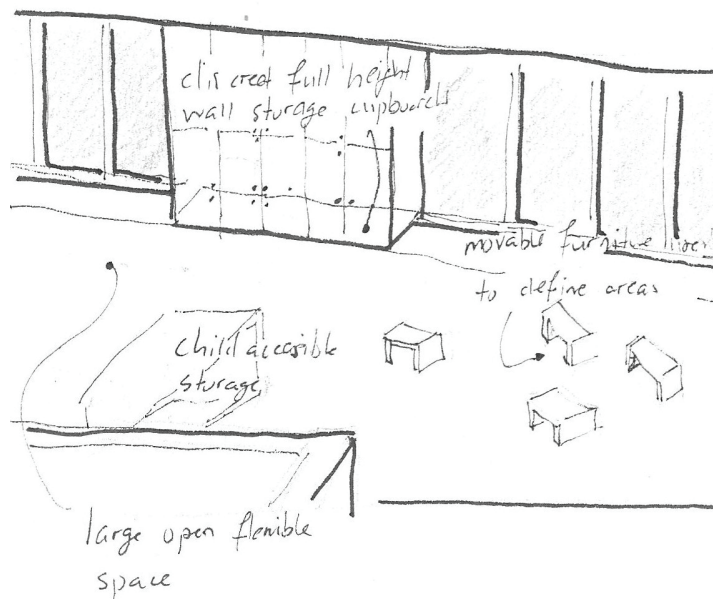 discreet full height
wall storage cupboards
movable furniture used
to define areas
child accesible
storage
large open flexible
space